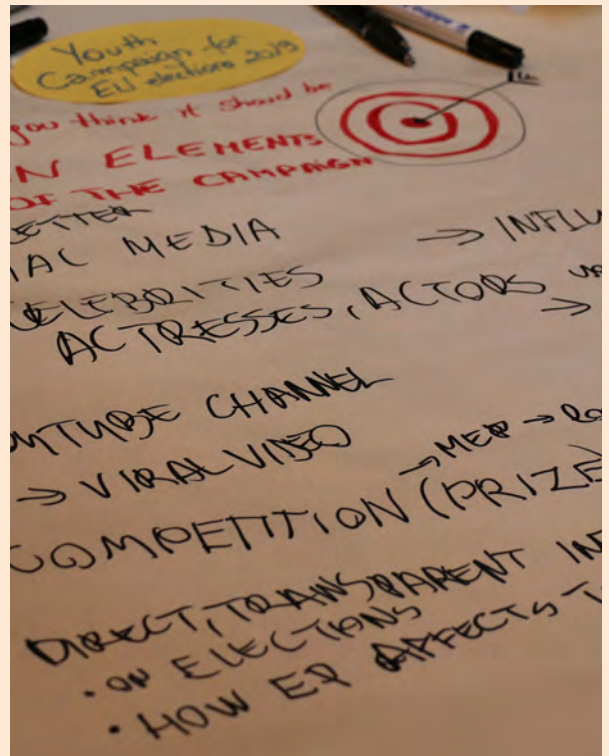 Youth
Campaign for
EU elections 2019
you think it should be
ELEMENTS
OF THE CAMPAIGN
ETTER
IAL MEDIA → INFLU
CELEBRITIES
ACTRESSES, ACTORS
→
OUTUBE CHANNEL
→ VIRAL VIDEO
→ MEP →
COMPETITION (PRIZE
DIRECT, TRANSPARENT IN
• ON ELECTIONS
• HOW EP AFFECTS T